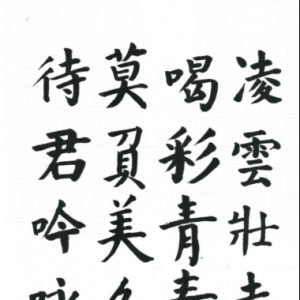 凌雲壯志
喝彩青春
莫負美
待君吟咏